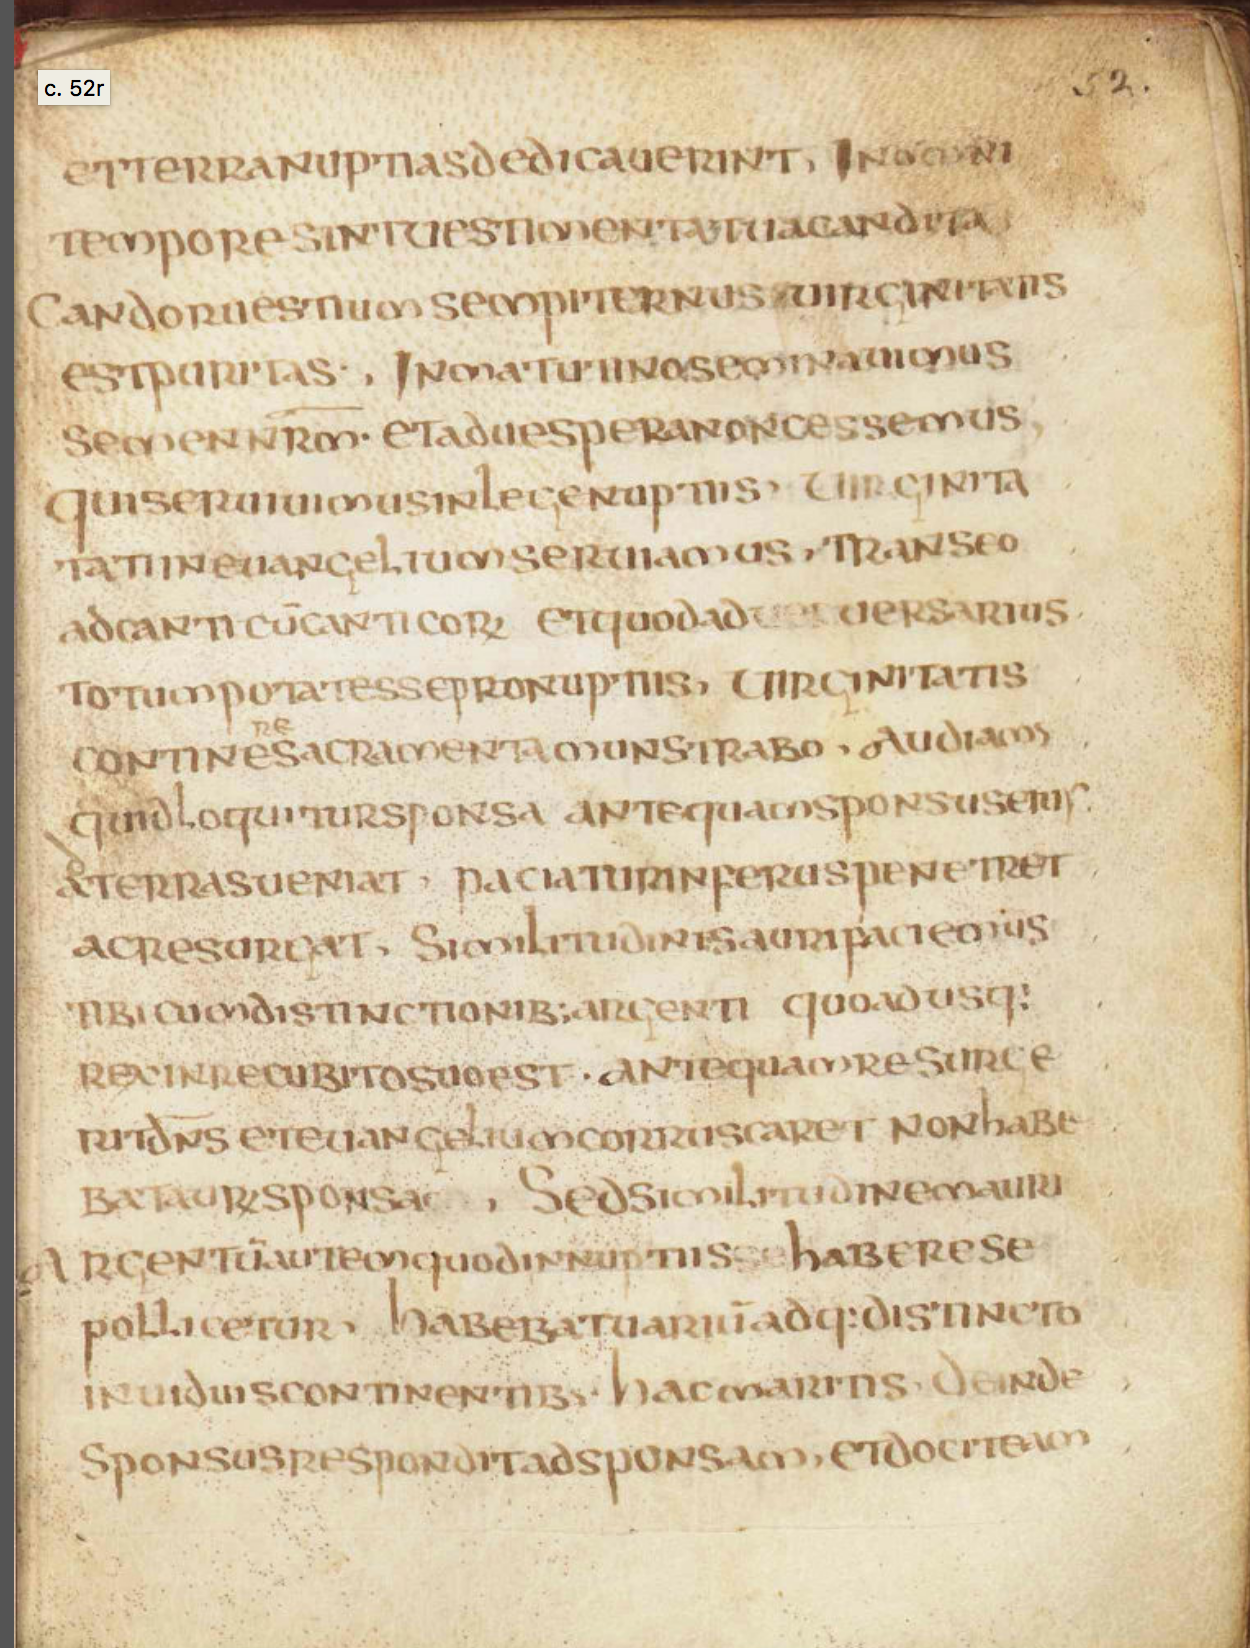 c. 52r
52.
etterranuptiasdedicauerint, Inomni
temporesintuestimentatuacandida
Candoruestiumsempiternusuirginitatis
estpuritas·, Inmatutinoseminauimus
semennr̄m· etaduesperanoncessemus,
quiseruiuimusinlegenuptiis, Uirginita
tatiineuangeliumseruiamus, transeo
adcanticūcanticoꝝ etquodaduersarius
totumpotatessepronuptiis, Uirginitatis
re
continesacramentamunstrabo, Audiams
quidloquitursponsa antequamsponsuseius
&terrasueniat, paciaturinferuspenetret
acresurgat, Similitudinisaurifaciemus
tibicumdistinctionib;argenti quoadusq:
rexinrecubitosuoest·antequamresurge
ritdn̄s eteuangeliumcorruscaret nonhabe
bataurꝝsponsa , Sedsimilitudinemauri
Argentūautemquodinnuptiis haberese
pollicetur, habebatuariūadq:distincto
inuiduiscontinentib;· hacmaritis, Deinde
Sponsusrespondit adsponsam, etdociteam